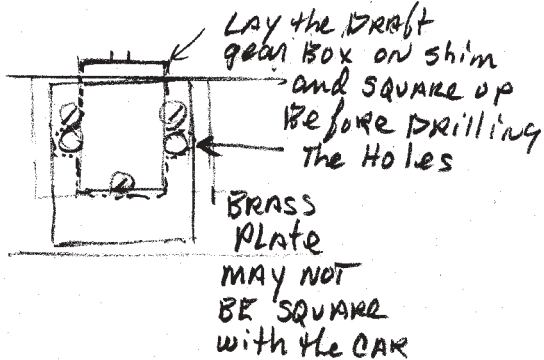 LAY the DRAFt
geAR BOX ON Shim
AND SQUARE UP
BEfoRE DRilliNg
The Holes
BRASS
PlAtE
MAY NOT
BE SQUARE
with the CAR